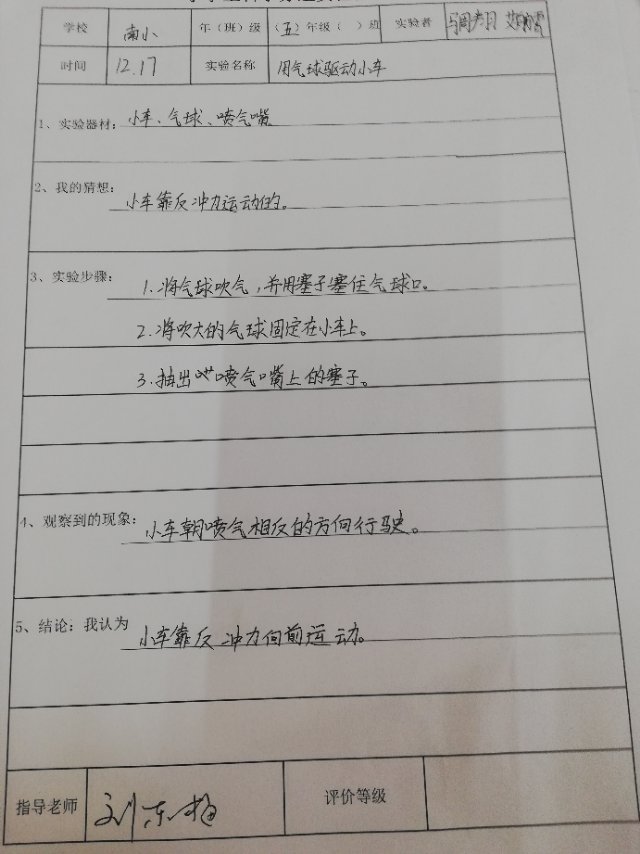 学校 南小 年（班）级 （五）年级（ ）班 实验者
时间 12.17 实验名称 用气球驱动小车
1、实验器材：小车、气球、喷气嘴
2、我的猜想：小车靠反冲力运动的。
3、实验步骤：1.将气球吹气，并用塞子塞住气球口。
2.将吹大的气球固定在小车上。
3.抽出喷气嘴上的塞子。
4、观察到的现象：小车朝喷气相反的方向行驶。
5、结论：我认为 小车靠反冲力向前运动。
指导老师 刘东梅 评价等级